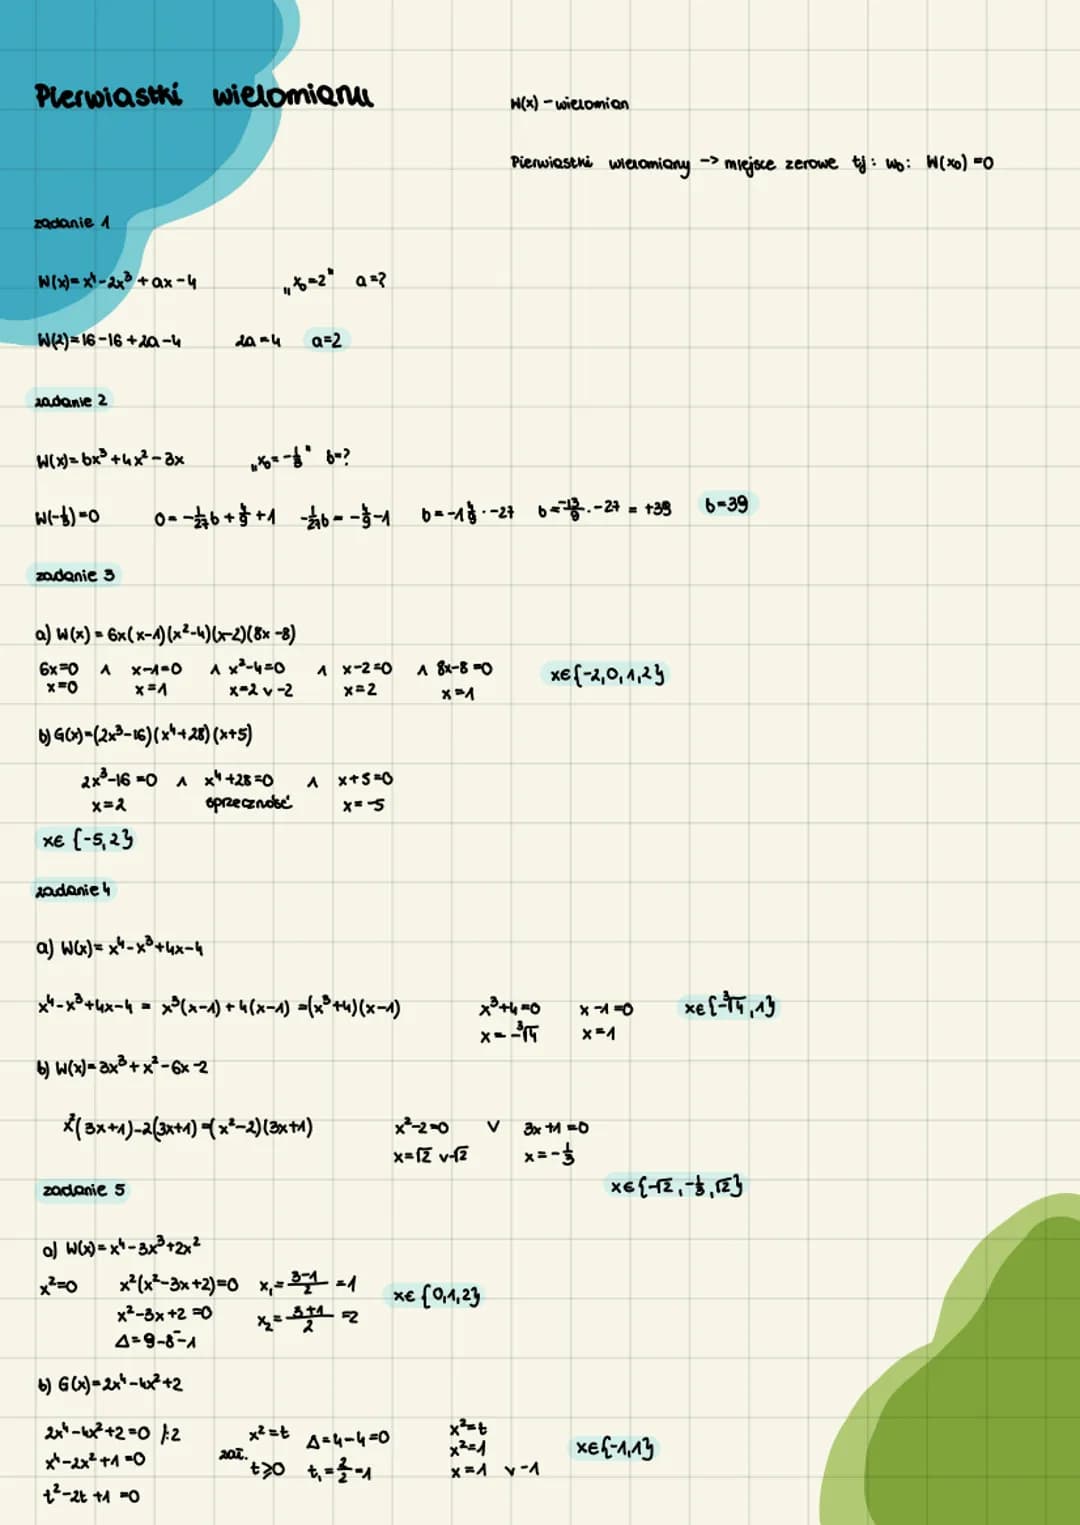 Pierwiastki wielomianu
W(x) - wielomian
Pierwiastki wielomiany -> miejsce zerowe tj: w₀: W(x₀) = 0
zadanie 1
W(x) = x⁴ - 2x³ + ax - 4 „x₀ = 2" a = ?
W(2) = 16 - 16 + 2a - 4 2a = 4 a = 2
zadanie 2
W(x) = bx³ + 4x² - 3x „x₀ = -1/3" b = ?
W(-1/3) = 0 0 = -1/27 b + 4/9 + 1 -1/27 b = -4/9 - 1 b = -1 4/9 · -27 b = -13/9 · -27 = +39 b = 39
zadanie 3
a) W(x) = 6x(x-1)(x²-4)(x-2)(8x-8)
6x=0 ∧ x-1=0 ∧ x²-4=0 ∧ x-2=0 ∧ 8x-8=0 x∈{-2,0,1,2}
x=0 x=1 x=2 v -2 x=2 x=1
b) G(x) = (2x³-16)(x⁴+28)(x+5)
2x³-16=0 ∧ x⁴+28=0 ∧ x+5=0
x=2 sprzeczność x=-5
x∈ {-5,2}
zadanie 4
a) W(x) = x⁴-x³+4x-4
x⁴-x³+4x-4 = x³(x-1)+4(x-1) = (x³+4)(x-1) x³+4=0 x-1=0 x∈{-∛4,1}
x = -∛4 x=1
b) W(x) = 3x³+x²-6x-2
x²(3x+1)-2(3x+1) = (x²-2)(3x+1) x²-2=0 v 3x+1=0
x=√2 v-√2 x=-1/3
x∈{-√2,-1/3,√2}
zadanie 5
a) W(x) = x⁴-3x³+2x²
x²=0 x²(x²-3x+2)=0 x₁ = (3-1)/2 = 1 x∈ {0,1,2}
x²-3x+2=0 x₂ = (3+1)/2 = 2
Δ=9-8=1
b) G(x) = 2x⁴-4x²+2
2x⁴-4x²+2=0 /:2 x²=t Δ=4-4=0 x²=t
x⁴-2x²+1=0 zał. t⩾0 t₁ = 2/2 = 1 x²=1 x∈{-1,1}
t²-2t+1=0 x=1 v -1